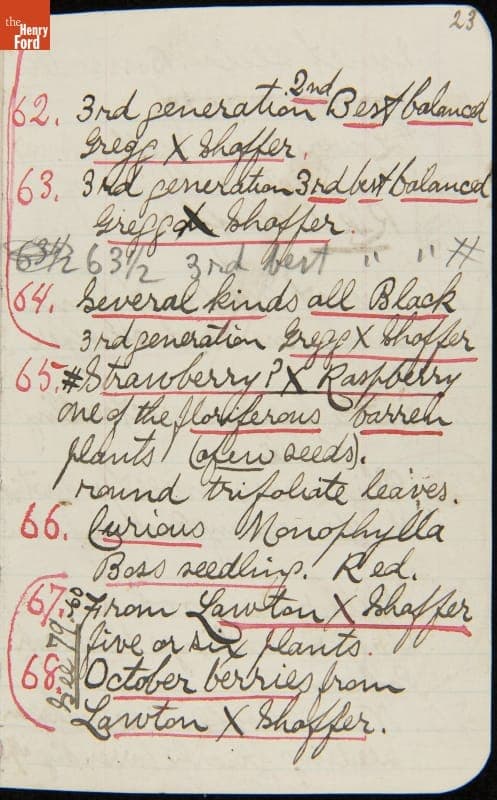 the
Henry
Ford
23
62. 3rd generation 2nd Best balanced
Gregg X Shaffer.
63. 3rd generation 3rd best balanced
Gregg X Shaffer.
63 1/2 63 1/2 3rd best " " #
64. Several kinds all Black
3rd generation Gregg X Shaffer
65. # Strawberry? X Raspberry
one of the floriferous barren
plants (a few seeds).
round trifoliate leaves.
66. Curious Monophylla
Boss seedling. Red.
67. From Lawton X Shaffer
five or six plants.
68. October berries from
Lawton X Shaffer.
See 79-60